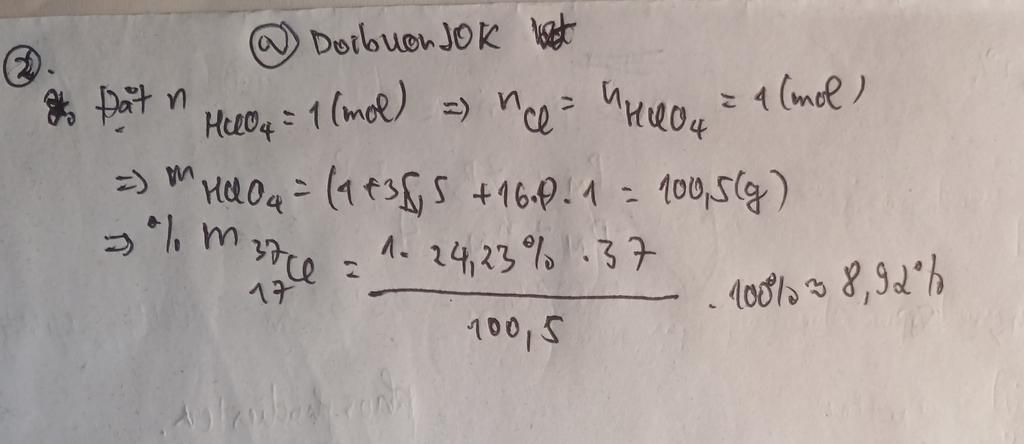 @ DoibuonJOK
②.
Đặt n HClO4 = 1 (mol) => nCl = nHClO4 = 1 (mol)
=> m HClO4 = (1+35,5 +16.4).1 = 100,5(g)
=> % m 37 17 Cl = 1. 24,23% .37 / 100,5 . 100% ≈ 8,92%